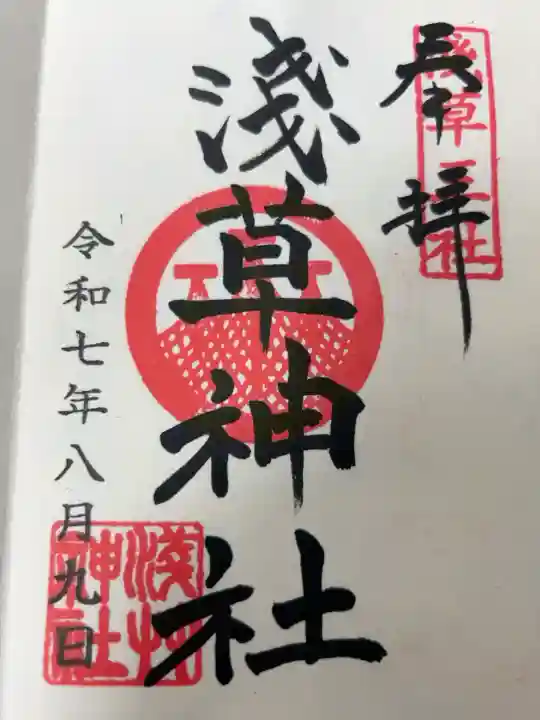 奉拝
浅草三社
淺草神社
令和七年八月九日
淺草神社